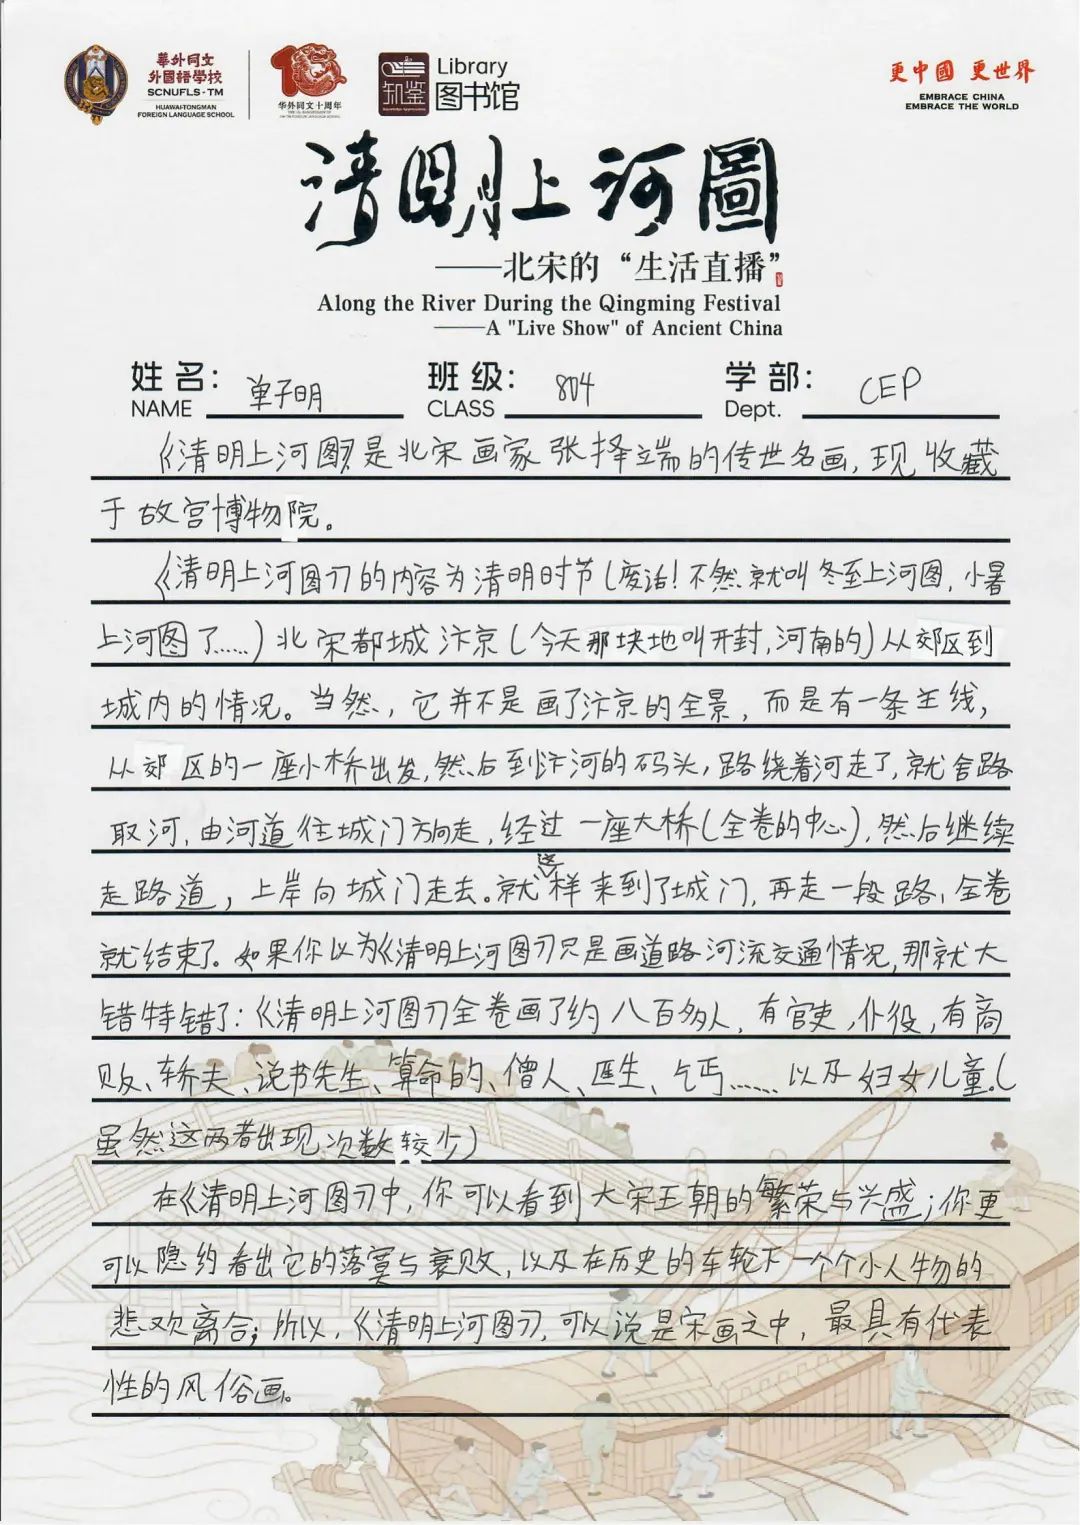 華外同文
外國語學校
SCNUFLS-TM
HUAWAI-TONGMAN
FOREIGN LANGUAGE SCHOOL
华外同文十周年
知鉴
Library
图书馆
更中國 更世界
EMBRACE CHINA
EMBRACE THE WORLD
清明上河圖
——北宋的“生活直播”
Along the River During the Qingming Festival
——A "Live Show" of Ancient China
姓名: 单子明 班级: 804 学部: CEP
NAME CLASS Dept.
《清明上河图》是北宋画家张择端的传世名画,现收藏
于故宫博物院。
《清明上河图》的内容为清明时节(废话!不然就叫冬至上河图,小暑
上河图了……)北宋都城汴京(今天那块地叫开封,河南的)从郊区到
城内的情况。当然、,它并不是画了汴京的全景,而是有一条主线,
从郊区的一座小桥出发,然后到汴河的码头,路绕着河走了,就舍路
取河,由河道往城门方向走,经过一座大桥(全卷的中心),然后继续
走路道,上岸向城门走去。就这样来到了城门,再走一段路,全卷
就结束了。如果你以为《清明上河图》只是画道路河流交通情况,那就大
错特错了:《清明上河图》全卷画了约八百多人,有官吏,仆役,有商
贩、轿夫、说书先生、算命的、僧人、医生、乞丐……以及妇女儿童。(
虽然这两者出现次数较少)
在《清明上河图》中,你可以看到大宋王朝的繁荣与兴盛;你更
可以隐约看出它的落寞与衰败,以及在历史的车轮下一个个小人物的
悲欢离合;所以,《清明上河图》,可以说是宋画之中,最具有代表
性的风俗画。